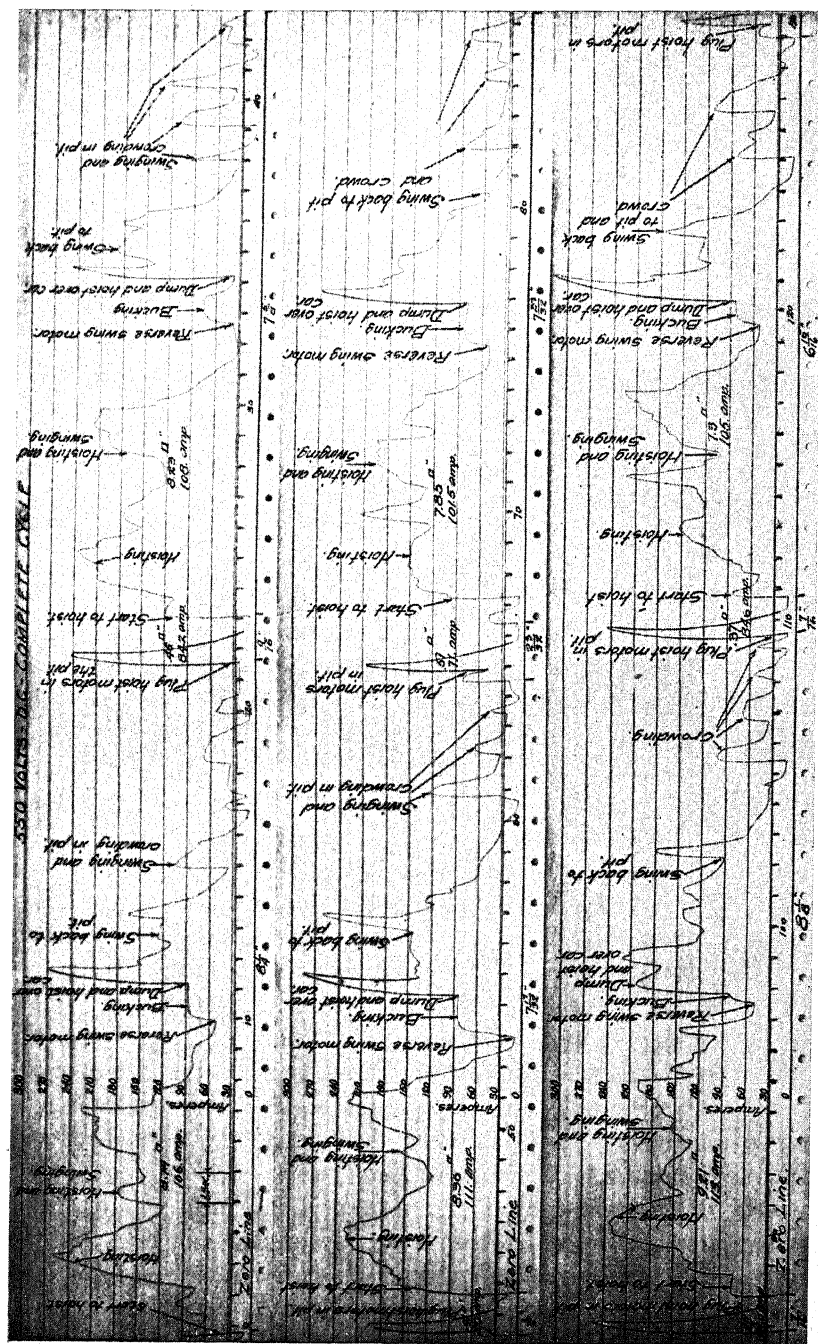 550 VOLTS D.C. COMPLETE CYCLE
Start to hoist
Hoisting.
Hoisting and
Swinging.
106 amp.
Zero Line
Amperes
300 270 240 210 180 150 120 90 60 30 0
Reverse swing motor.
10
Bucking
Dump and hoist over
car.
Swing back to
pit.
Swinging and
crowding in pit.
20
Plug hoist motors in
the pit
84.2 amp.
Start to hoist.
Hoisting
8.23 □"
108. amp.
Hoisting and
Swinging
30
Reverse swing motor.
Bucking
Dump and hoist over car.
Swing back
to pit.
Swinging and
crowding in pit.
40
Start to hoist
Hoisting.
Hoisting and
Swinging
8.36 □"
111. amp.
Zero Line
50
Amperes.
Reverse swing motor.
Bucking
Dump and hoist over
car.
Swing back to
pit.
60
Swinging and
Crowding in pit
Plug hoist motors
in pit.
71 amp.
Start to hoist
Hoisting.
70
7.85 □"
101.5 amp.
Hoisting and
Swinging
Reverse swing motor.
Bucking
Dump and hoist over
car.
80
Swing back to pit
and crowd.
Plug hoist motors in pit
Start to hoist
Hoisting
9.21 □"
113 amp.
Zero Line
Hoisting and
Swinging
Amperes.
Reverse swing motor
Bucking.
Dump
and hoist
over car.
100
Swing back to
pit.
Crowding.
Plug hoist motors in
pit.
84.6 amp.
110
Start to hoist
Hoisting
Hoisting and
Swinging.
7.9 □"
105. amp.
Reverse swing motor.
Bucking.
Dump and hoist over
car.
120
Swing back
to pit and
crowd
Plug hoist motors in
pit.